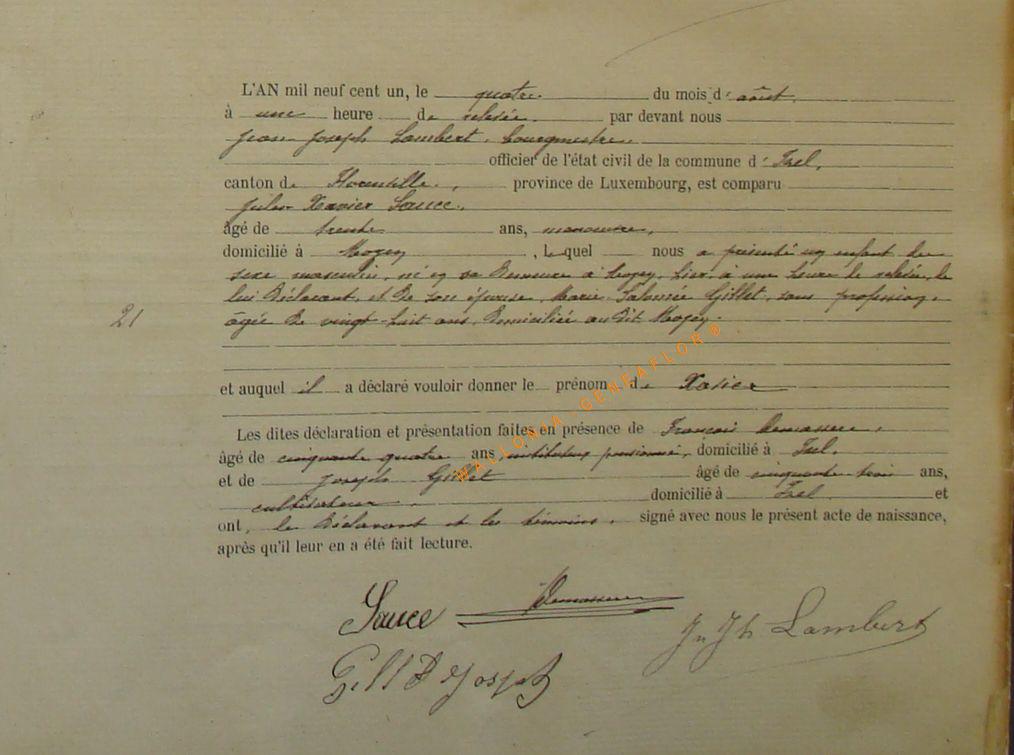 L'AN mil neuf cent un, le quatre du mois d'août,
à une heure de relevée par devant nous
Jean Joseph Lambert, bourgmestre,
officier de l'état civil de la commune d'Izel,
canton de Florenville, province de Luxembourg, est comparu
Jules Xavier Sauce,
âgé de trente ans, manœuvre,
domicilié à Moyen, lequel nous a présenté un enfant de
sexe masculin, né en sa demeure à Moyen, hier, à une heure de relevée, de
lui déclarant, et de son épouse, Marie Salomée Gillet, sans profession,
âgée de vingt-huit ans, domiciliée au dit Moyen.
21
et auquel il a déclaré vouloir donner le prénom de Xavier
Les dites déclaration et présentation faites en présence de François
âgé de cinquante quatre ans instituteur pensionné, domicilié à Izel,
et de Joseph Gillet âgé de cinquante trois ans,
cultivateur, domicilié à Izel et
ont, le déclarant et les témoins, signé avec nous le présent acte de naissance,
après qu'il leur en a été fait lecture.
WALLONIA - GENEAFLOR ®
Sauce
Jn Jh Lambert
Gillet Joseph